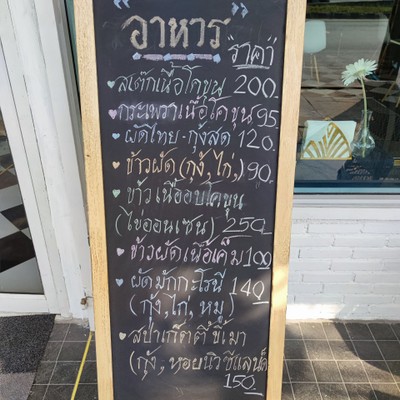 อาหาร
"ราคา"
สเต๊กเนื้อโคขุน 200.
กระเพราเนื้อโคขุน 95
ผัดไทย-กุ้งสด 120.
ข้าวผัด (กุ้ง, ไก่,) 90.
ข้าวเนื้ออบโคขุน
(ไข่ออนเซน) 250
ข้าวผัดเนื้อเค็ม 100
ผัดมักกะโรนี 140
(กุ้ง, ไก่, หมู)
สปาเก็ตตี้ขี้เมา
(กุ้ง, หอยนิวซีแลนด์)
150.